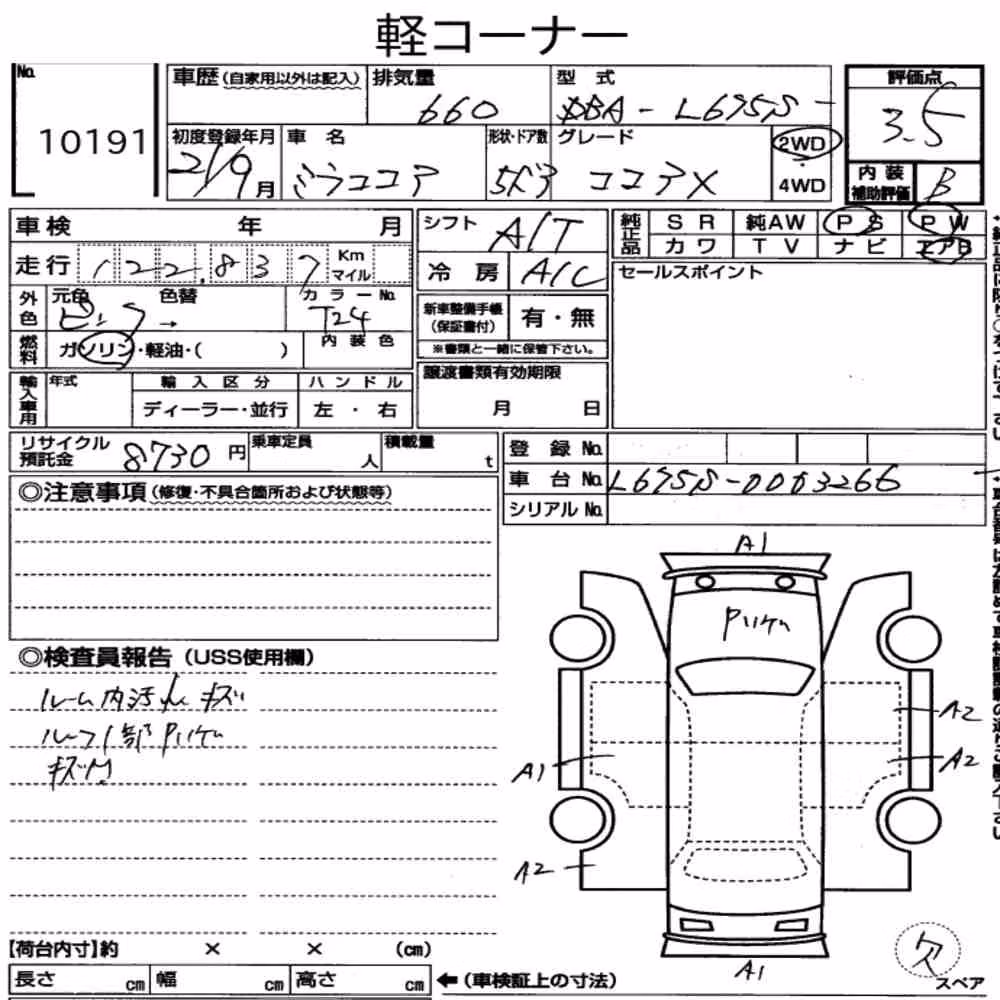 軽コーナー
No. 10191
車歴(自家用以外は記入) 排気量 660 型式 DBA-L675S-
初度登録年月 21/9月 車名 ミラココア 形状・ドア数 5ドア グレード ココアX 2WD・4WD
評価点 3.5
内装補助評価 B
車検 年 月
走行 122,837 Km マイル
外色 元色 ピンク → 色替 カラーNo. T24
燃料 ガソリン・軽油・( ) 内装色
輸入車用 年式 輸入区分 ディーラー・並行 ハンドル 左・右
シフト A/T
冷房 A/C
新車整備手帳(保証書付) 有・無
※書類と一緒に保管下さい。
譲渡書類有効期限 月 日
純正品 SR 純AW PS PW
カワ TV ナビ エアB
セールスポイント
リサイクル預託金 8730円 乗車定員 人 積載量 t
登録No.
車台No. L675S-0003266
シリアルNo.
◎注意事項(修復・不具合箇所および状態等)
◎検査員報告(USS使用欄)
ルーム内汚れキズ
ルーフ1部Pハゲ
キズ凹
A1
Pハゲ
A2
A1
A2
A2
A1
欠
スペア
【荷台内寸】約 × × (cm)
長さ cm 幅 cm 高さ cm ←(車検証上の寸法)